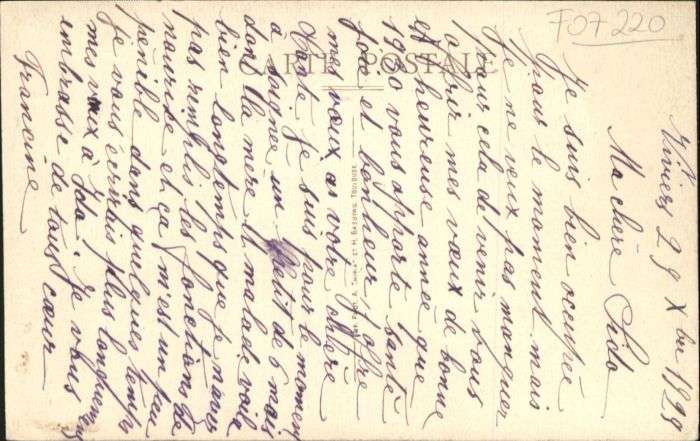 F07220
CARTE POSTALE
Viviers 29 Xbre 1929
Ma chère Lido
Je suis bien occupée
pour le moment mais
je ne veux pas manquer
pour cela de venir vous
offrir mes vœux de bonne
et heureuse année que
1930 vous apporte santé
joie et bonheur j'offre
mes vœux à votre chère
je suis pour le moment
à soigner un petit de 6 mois
dont la mère malade voila
bien longtemps que je n'avais
pas remplis les fonctions de
nourice et ça m'est un peu
pénible dans quelques temps
je vous écrirais plus longuement
mes vœux à Ida. Je vous
embrasse de tout cœur
Francine